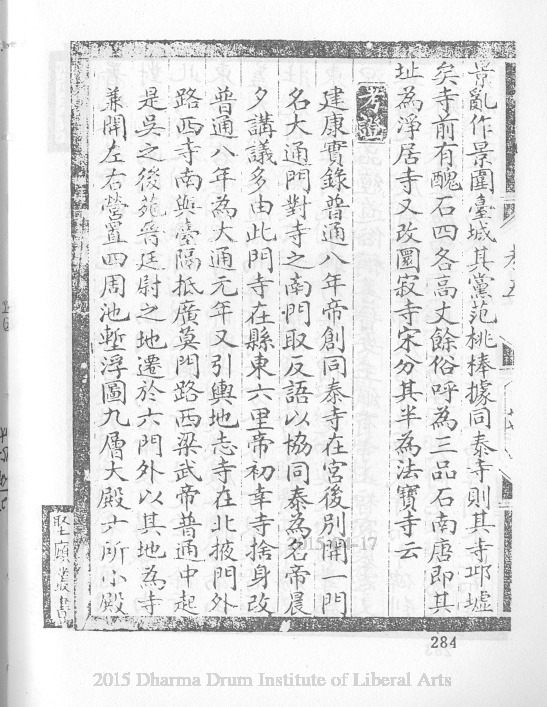 景亂作景圍臺城其黨范桃棒據同泰寺則其寺邛墟
矣寺前有醜石四各高丈餘俗呼為三品石南唐即其
址為淨居寺又改圜寂寺宋分其半為法寶寺云
考證
建康實錄普通八年帝創同泰寺在宮後別開一門
名大通門對寺之南門取反語以協同泰為名帝晨
夕講議多由此門寺在縣東六里帝初幸寺捨身改
普通八年為大通元年又引輿地志寺在北掖門外
路西寺南與臺隔抵廣莫門路西梁武帝普通中起
是吳之後苑晉廷尉之地遷於六門外以其地為寺
兼開左右營置四周池塹浮圖九層大殿六所小殿
卷五
堅願叢書
284
2015 Dharma Drum Institute of Liberal Arts